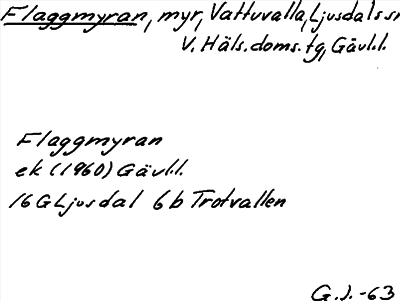 Flaggmyran, myr, Vattuvalla, Ljusdals sn
V. Häls. doms. tg, Gävl.l.
Flaggmyran
ek (1960) Gävl.l.
16G Ljusdal 6b Trotvallen
G.J. -63